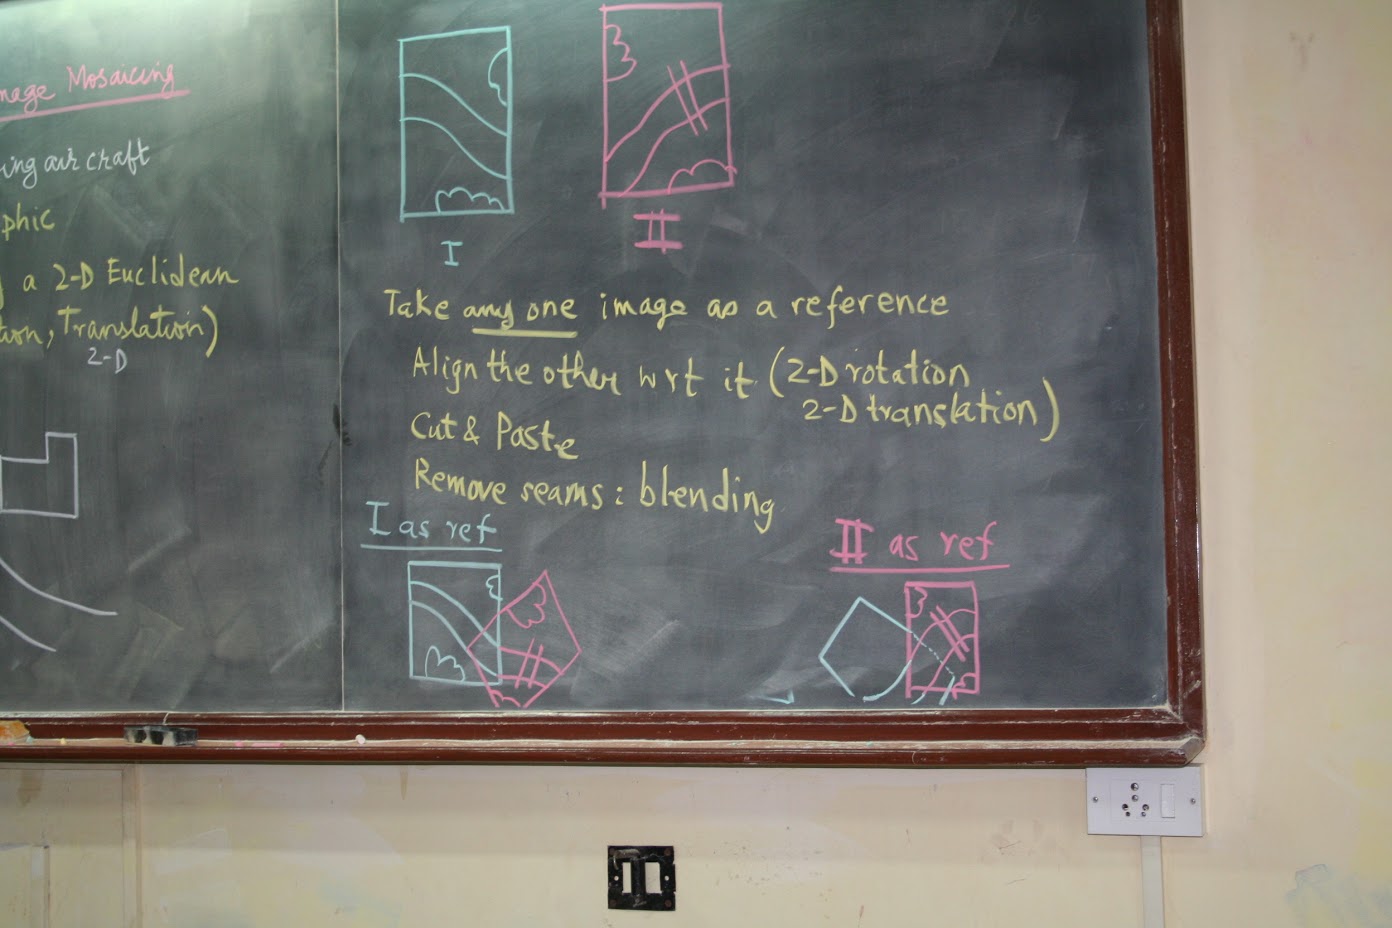 mage Mosaicing
ing air craft
phic
a 2-D Euclidean
tion, Translation)
2-D
I
II
Take any one image as a reference
Align the other wrt it (2-D rotation
2-D translation)
Cut & Paste
Remove seams : blending
I as ref
II as ref